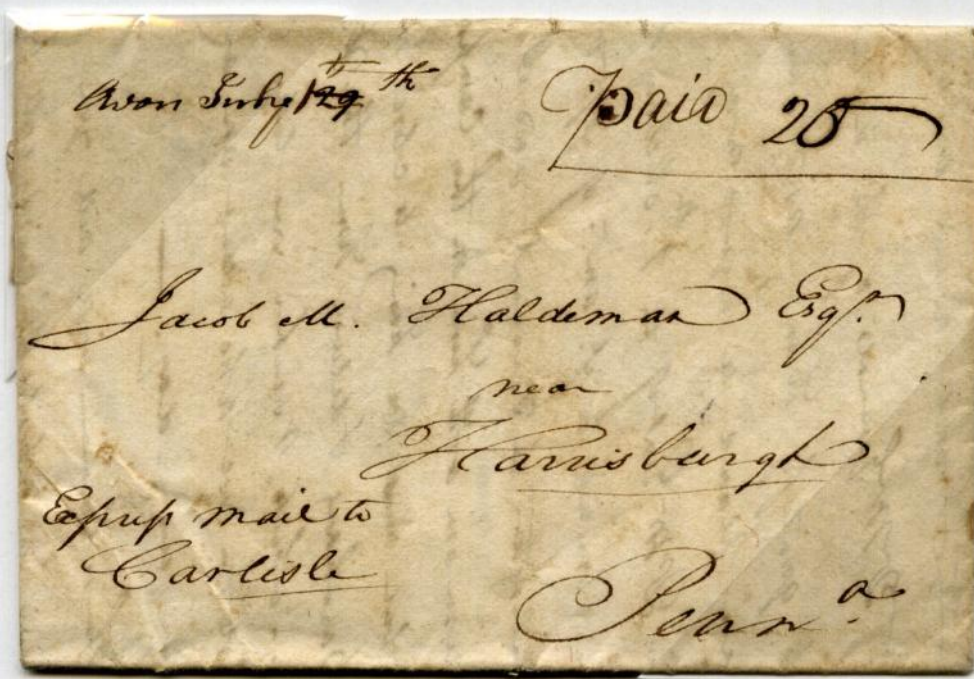 Avon July th
Paid 25
Jacob M. Haldeman Esqr.
near
Harrisburgh
Express mail to
Carlisle
Penna.